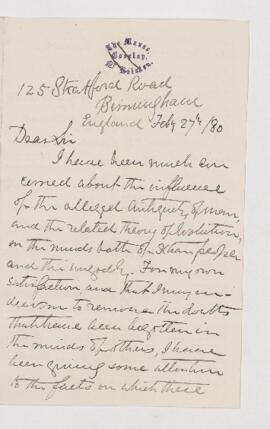 The Manse,
125 Stratford Road
Birmingham
England Feby 27th/80
Dear Sir
I have been much con
cerned about the influence
of the alleged Antiquity of man,
and the related theory of Evolution,
on the minds both of Xtian people
and the ungodly. For my own
satisfaction and that I may en-
deavour to remove the doubts
that have been begotten in
the minds of others, I have
been giving some attention
to the facts on which these